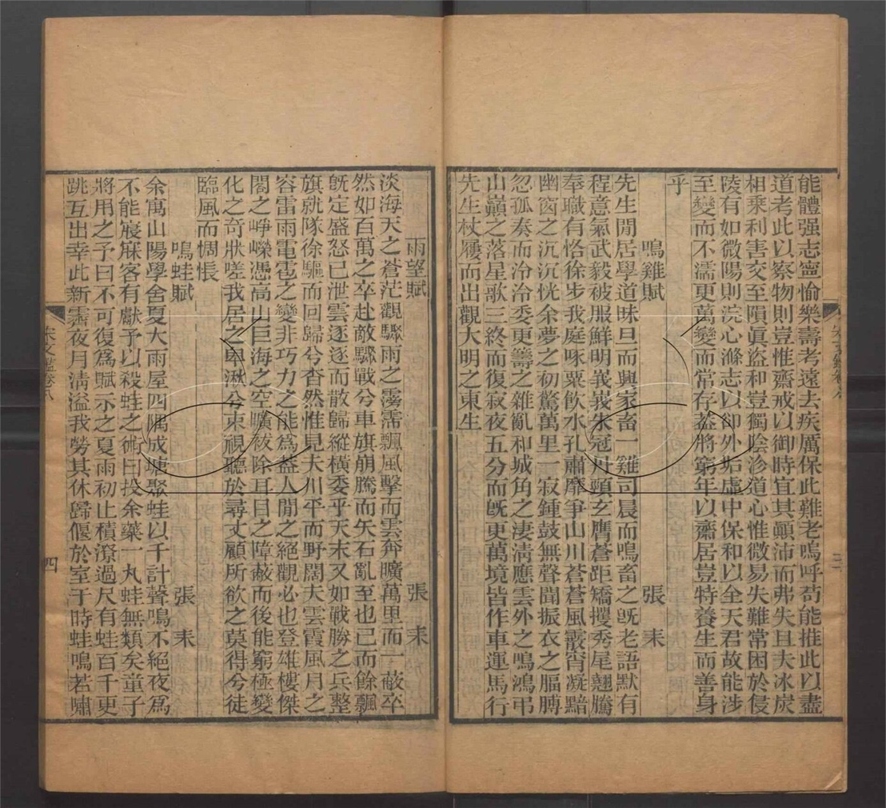 能體强志寧愉樂壽考遠去疾厲保此難老嗚呼苟能推此以盡
道考此以察物則豈惟齋戒以御時宜其顚沛而弗失且夫冰炭
相乘利害交至隕眞盜和豈獨陰沴道心惟微易失難常困於侵
陵有如微陽則浣心滌志以卻外垢虛中保和以全天君故能涉
至變而不濡更萬變而常存蓋將窮年以齋居豈特養生而善身
乎
鳴雞賦 張耒
先生閒居學道昧旦而興家畜一雞司晨而鳴畜之旣老語默有
程意氣武毅被服鮮明峩峩朱冠丹頸玄膺蒼距矯攫秀尾翹騰
奉職有恪徐步我庭啄粟飲水孔肅靡爭山川蒼蒼風霰宵凝黯
幽窗之沉沉恍余夢之初驚萬里一寂鍾鼓無聲聞振衣之腷膊
忽孤奏而泠泠委更籌之雜亂和城角之淒淸應雲外之鳴鴻弔
山巓之落星歌三終而復寂夜五分而旣更萬境皆作車運馬行
先生杖屨而出觀大明之東生
三
雨望賦 張耒
淡海天之蒼茫觀驟雨之霶霈飄風擊而雲奔曠萬里而一蔽卒
然如百萬之卒赴敵驟戰兮車旗崩騰而矢石亂至也已而餘飄
旣定盛怒已泄雲逐逐而散歸縱橫委乎天末又如戰勝之兵整
旗就隊徐驅而回歸兮杳然惟見夫川平而野闊夫雲霞風月之
容雷雨電雹之變非巧力之能爲蓋人閒之絕觀必也登雄樓傑
閣之崢嶸憑高山巨海之空曠祓除耳目之障蔽而後能窮極變
化之奇狀嗟我居之卑湫兮束視聽於尋丈顧所欲之莫得兮徒
臨風而惆悵
鳴蛙賦 張耒
余寓山陽學舍夏大雨屋四隅成塘聚蛙以千計聲鳴不絕夜爲
不能寢寐客有獻予以殺蛙之術曰投余藥一丸蛙無類矣童子
將用之予曰不可復爲賦示之夏雨初止積潦過尺有蛙百千更
跳互出幸此新霽夜月淸溢我勞其休歸偃於室于時蛙鳴若嘯
宋文鑑卷八
四